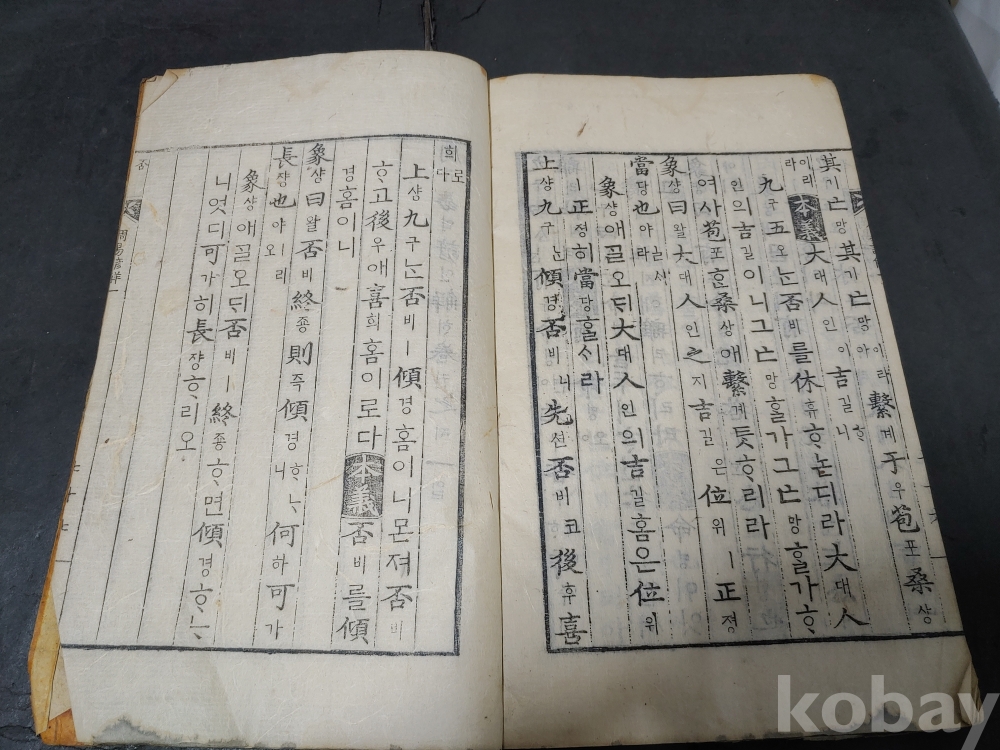 其기亡망其기亡망아이라繫계于우苞포桑상
이리라本義大대人인이吉길ᄒᆞ니
九구五오ᄂᆞᆫ否비를休휴ᄒᆞᄂᆞᆫ디라大대人
인의吉길이니그亡망ᄒᆞᆯ가그亡망ᄒᆞᆯ가ᄒᆞ
여사苞포ᄒᆞᆫ桑상애繫계ᄐᆞᆺᄒᆞ리라
象샹曰왈大대人인之지吉길은位위ㅣ正졍
當당也야
象샹애ᄀᆞᆯ오ᄃᆡ大대人인의吉길홈은位위
ㅣ正졍히當당ᄒᆞᆯᄉᆡ라
上샹九구ᄂᆞᆫ傾경否비이니先션否비코後후喜
희로다
上샹九구ᄂᆞᆫ否비ㅣ傾경홈이니몬져否비
ᄒᆞ고後후애喜희홈이로다本義否비를傾
경홈이니
象샹曰왈否비終종則즉傾경ᄒᆞᄂᆞ니何하可가
長쟝也야오리
象샹애ᄀᆞᆯ오ᄃᆡ否비ㅣ終종ᄒᆞ면傾경ᄒᆞᄂᆞ
니엇디可가히長쟝ᄒᆞ리오
周易諺解一
kobay